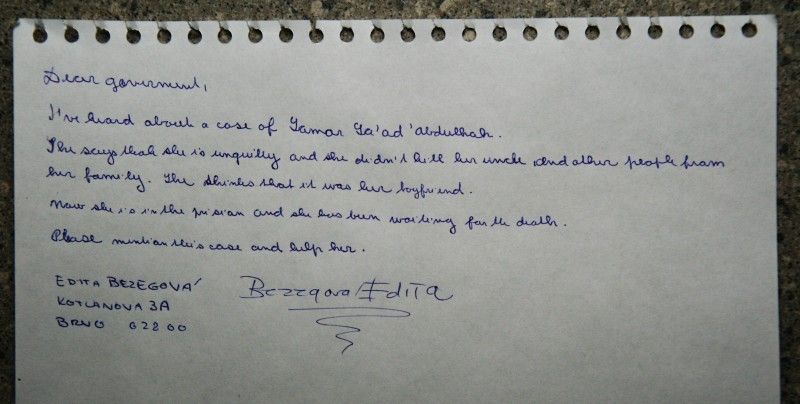 Dear government,
I've heard about a case of Samar Sa'ad 'Abdullah.
She says that she is unguilty and she didn't kill her uncle and other people from
her family. She thinks that it was her boyfriend.
Now she is in the prision and she has been waiting for the death.
Please mention this case and help her.
EDITA BEZEGOVÁ
KOTLANOVA 3A
BRNO 62800
Bezegová Edita